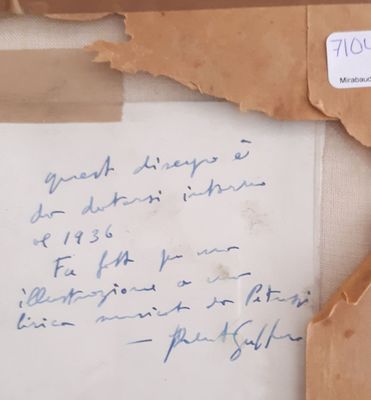 7104
Mirabaud
quest disegno è
da datarsi intorno
al 1936
Fu fatt per una
illustrazione a una
lirica musicat da Petrassi
—